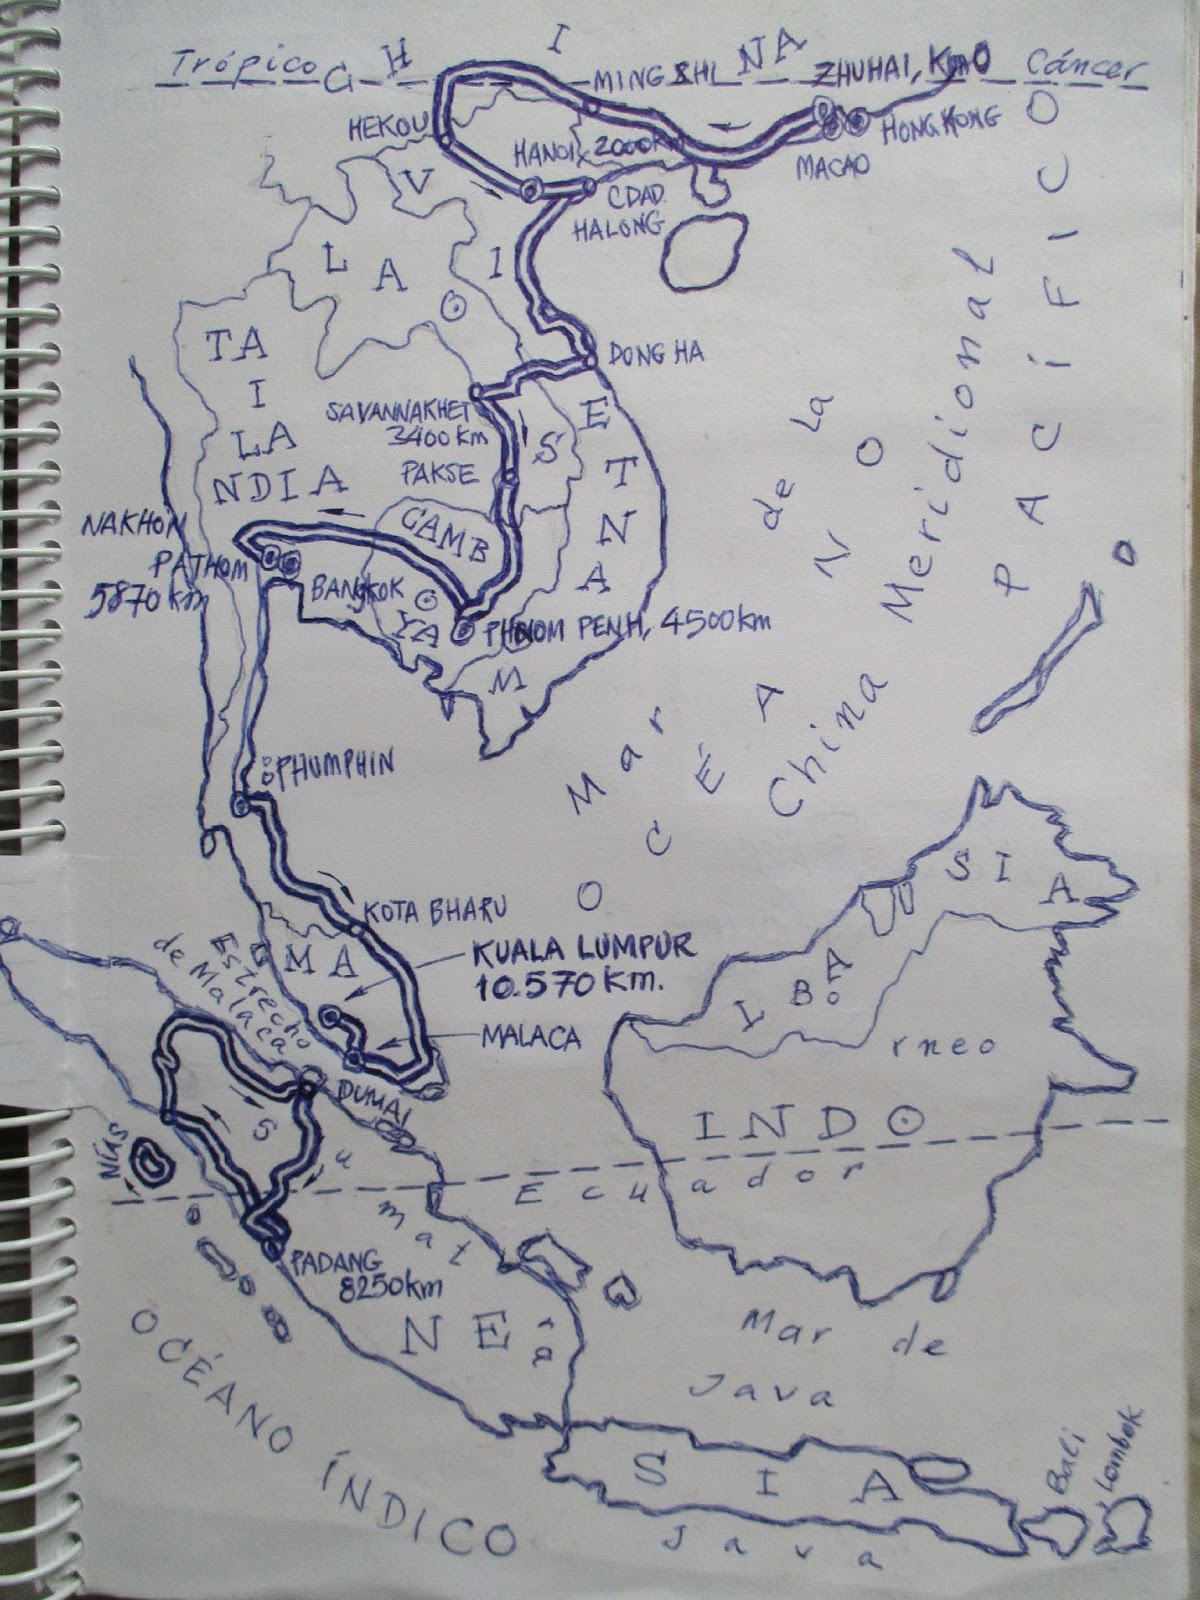 CHINA
Trópico
Cáncer
MING SHI
ZHUHAI,
HEKOU
HONG KONG
MACAO
HANOI, 2000km
CDAD.
HALONG
VIETNAM
LAOS
TAILANDIA
DONG HA
SAVANNAKHET
3400 km
PAKSE
CAMB
YA
NAKHON
PATHOM
5870 km
BANGKOK
PHNOM PENH, 4500km
Mar de la
China Meridional
OCÉANO
PACÍFICO
PHUMPHIN
KOTA BHARU
KUALA LUMPUR
10.570 Km.
MALACA
Estrecho
de Malaca
MALASIA
DUMAI
Borneo
INDO
Ecuador
NIAS
Sumat
PADANG
8250km
NE
SIA
Mar de
Java
OCÉANO ÍNDICO
Java
Bali
Lombok